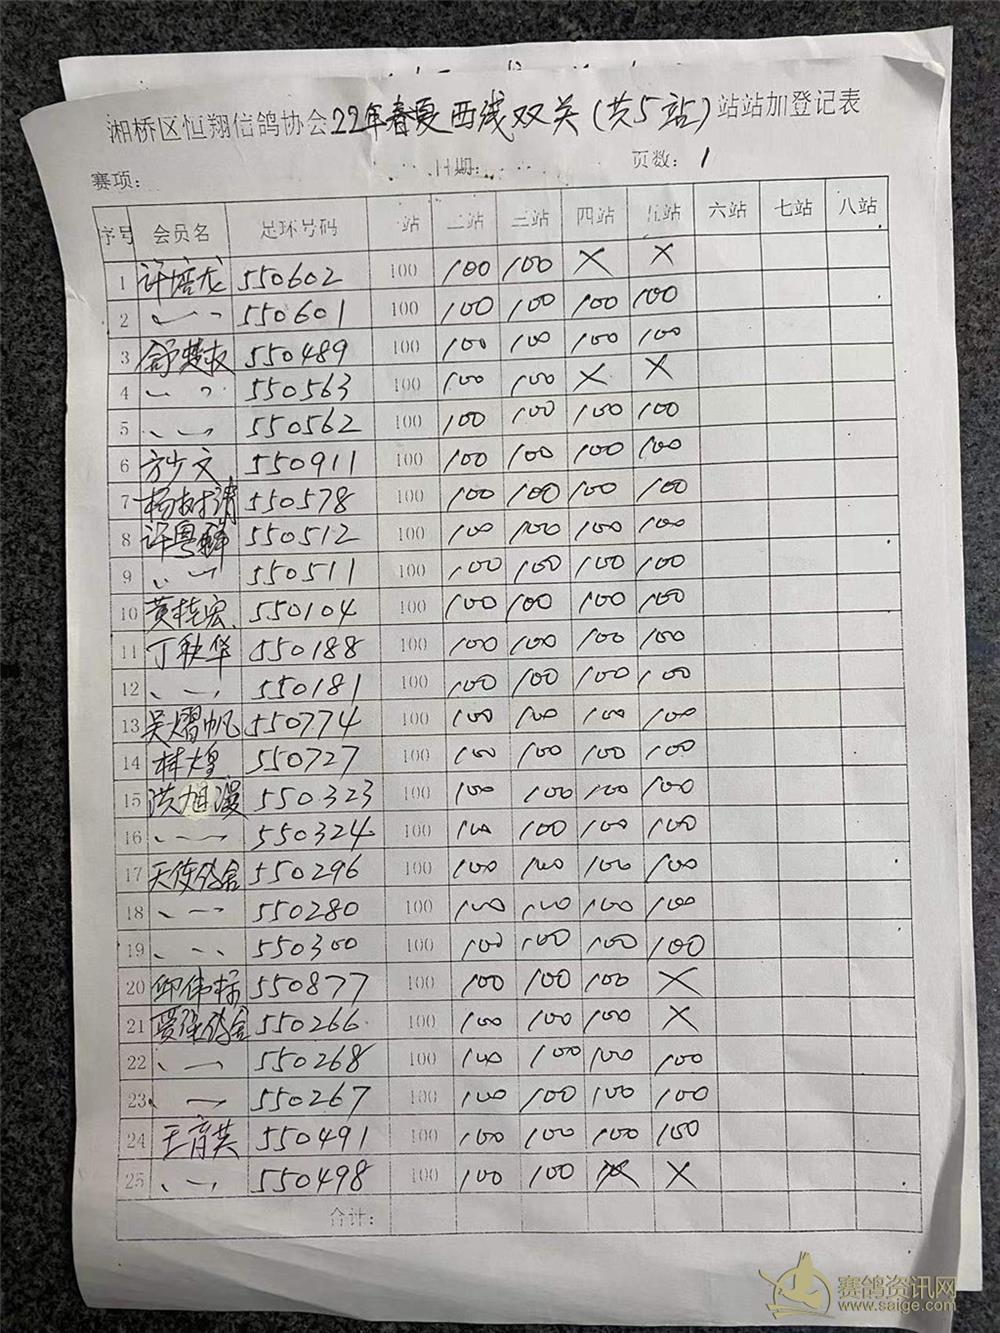 湘桥区恒翔信鸽协会22年春夏西线双关(共5站)站站加登记表
赛项: 日期: 页数: 1
序号 会员名 足环号码 一站 二站 三站 四站 五站 六站 七站 八站
1 许培龙 550602 100 100 100 X X
2 〃 550601 100 100 100 100 100
3 舒楚权 550489 100 100 100 100 100
4 〃 550563 100 100 100 X X
5 〃 550562 100 100 100 100 100
6 方少文 550911 100 100 100 100 100
7 杨树 550578 100 100 100 100 100
8 许粤 550512 100 100 100 100 100
9 〃 550511 100 100 100 100 100
10 黄桂宏 550104 100 100 100 100 100
11 丁秋华 550188 100 100 100 100 100
12 〃 550181 100 100 100 100 100
13 吴熠帆 550774 100 100 100 100 100
14 林煌 550727 100 100 100 100 100
15 洪旭 550323 100 100 100 100 100
16 〃 550324 100 100 100 100 100
17 天使鸽舍 550296 100 100 100 100 100
18 〃 550280 100 100 100 100 100
19 〃 550300 100 100 100 100 100
20 邱伟 550877 100 100 100 100 X
21 鸽舍 550266 100 100 100 100 X
22 〃 550268 100 100 100 100 100
23 〃 550267 100 100 100 100 100
24 王育英 550491 100 100 100 100 100
25 〃 550498 100 100 100 X
合计:
赛鸽资讯网
www.saige.com